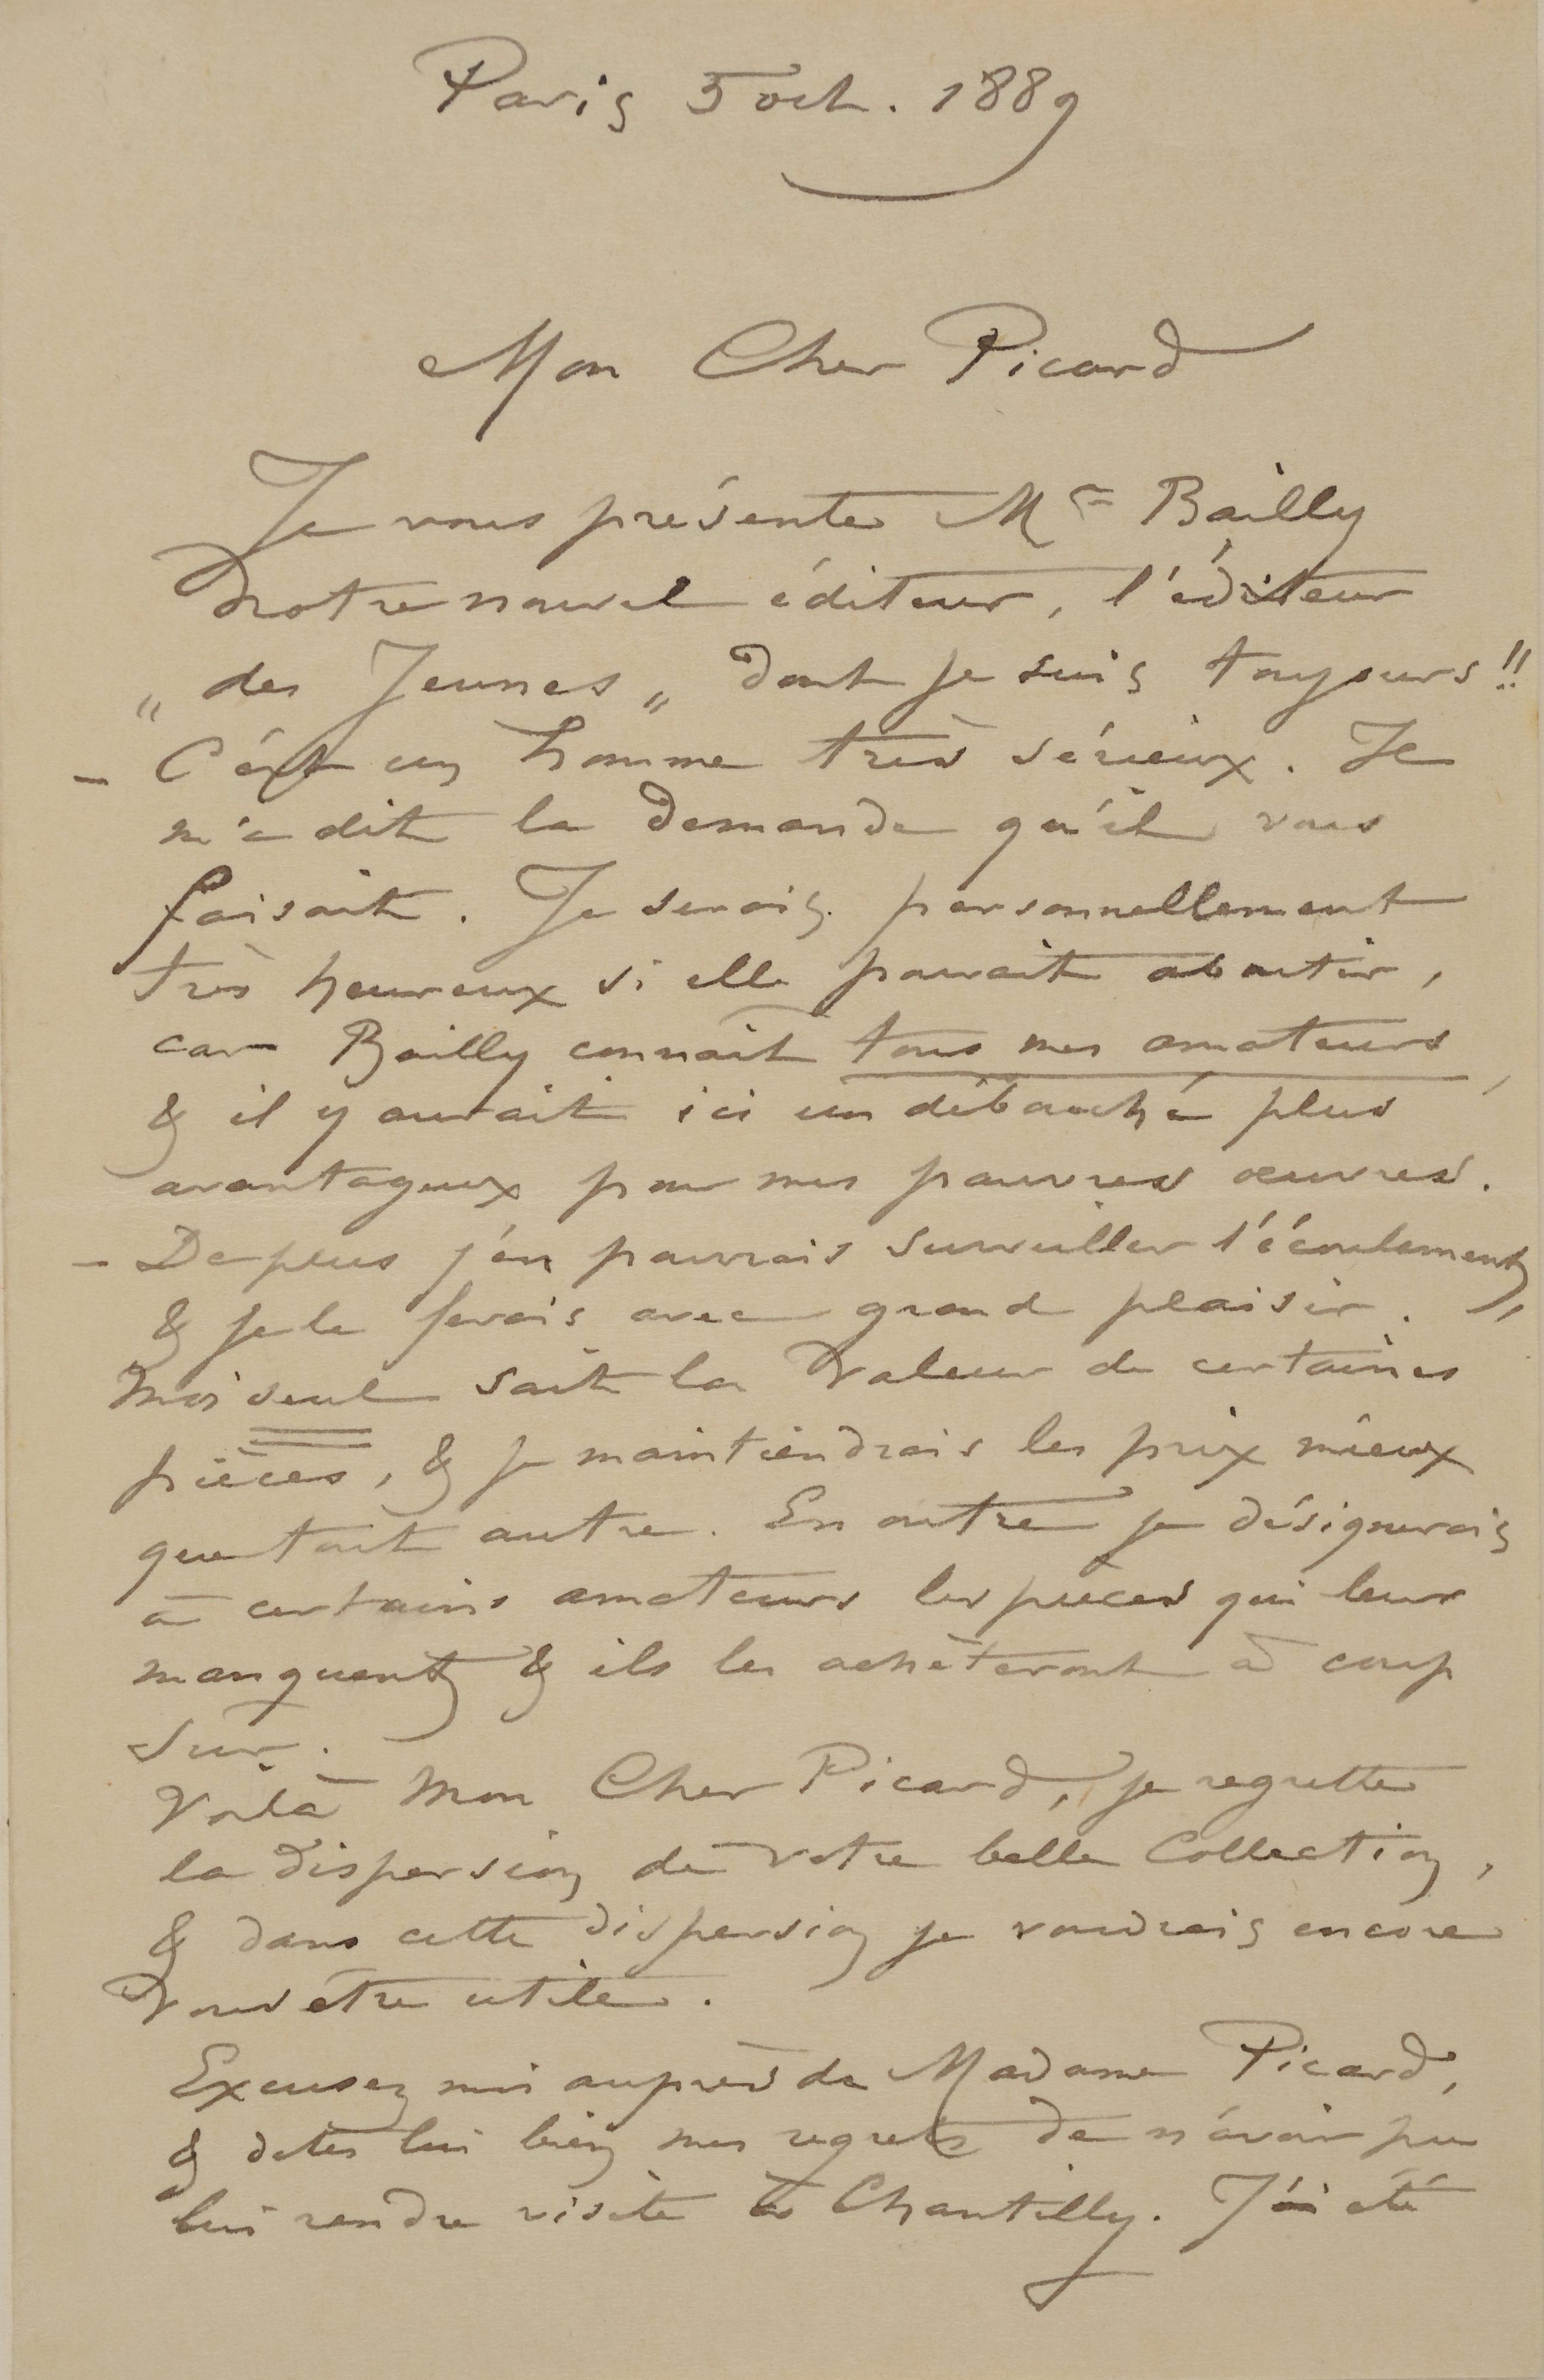 Paris 5 oct. 1889
Mon Cher Picard
Je vous présente Mr Bailly
notre nouvel éditeur, l'éditeur
„ des Jeunes „ dont je suis toujours !!
– C'est un homme très sérieux. Il
m'a dit la demande qu'il vous
faisait. Je serais personnellement
très heureux si elle pouvait aboutir,
car Bailly connait tous mes amateurs,
& il y aurait ici un débouché plus
avantageux pour mes pauvres œuvres.
– De plus j'en pourrais surveiller l'écoulement,
& je le ferais avec grand plaisir.
Moi seul sait la valeur de certaines
pièces, & je maintiendrais les prix mieux
que tout autre. En outre je désignerais
à certains amateurs les pièces qui leur
manquent & ils les achèteront à coup
sur.
Voilà Mon Cher Picard, je regrette
la dispersion de votre belle Collection,
& dans cette dispersion je voudrais encore
vous être utile.
Excusez moi auprès de Madame Picard,
& dites lui bien mes regrets de n'avoir pu
lui rendre visite à Chantilly. J'ai été